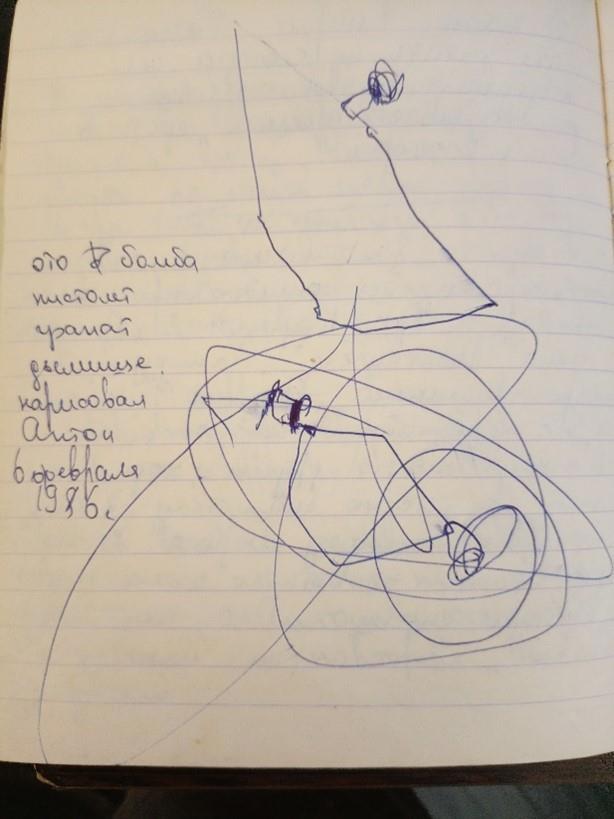 это бомба
пистолет
гранат
дымище.
нарисовал
Антон
6 февраля
1986г.